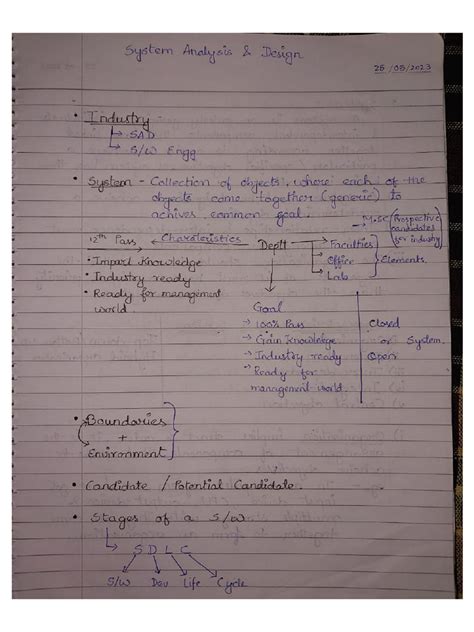 System Analysis & Design
25/08/2023
• Industry
↳ SAD
↳ S/W Engg
• System - Collection of objects, where each of the
objects come together (generic) to
achives common goal.
12th Pass ← Charateristics Deptt → Faculties → M.Sc (Prospective candidates for industry)
→ Office
→ Lab
Elements.
• Impart Knowledge
• Industry ready
• Ready for management
world.
Goal
→ 100% Pass
→ Gain Knowledge
→ Industry ready
→ Ready for
management world.
Closed
or System.
Open
• Boundaries
+
Environment
• Candidate / Potential Candidate.
• Stages of a S/W
↳ S D L C
S/W Dev Life Cycle